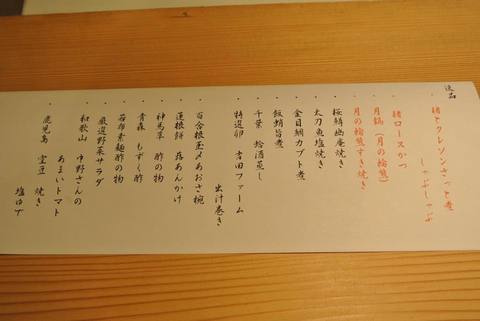 逸品
・猪とクレソンさっと煮
しゃぶしゃぶ
・猪ロースかつ
・月鍋（月の輪熊）
・月の輪熊すき焼き
・桜鱒幽庵焼き
・太刀魚塩焼き
・金目鯛カブト煮
・飯蛸旨煮
・千葉 蛤酒蒸し
・特選卵 吉田ファーム
出汁巻き
・百合根茶〆あおさ椀
・蓮根餅 蕗あんかけ
・神馬草 酢の物
・青森 もずく酢
・若布素麺酢の物
・厳選野菜サラダ
・和歌山 中野さんの
あまいトマト
・鹿児島 空豆 焼き
塩ゆで